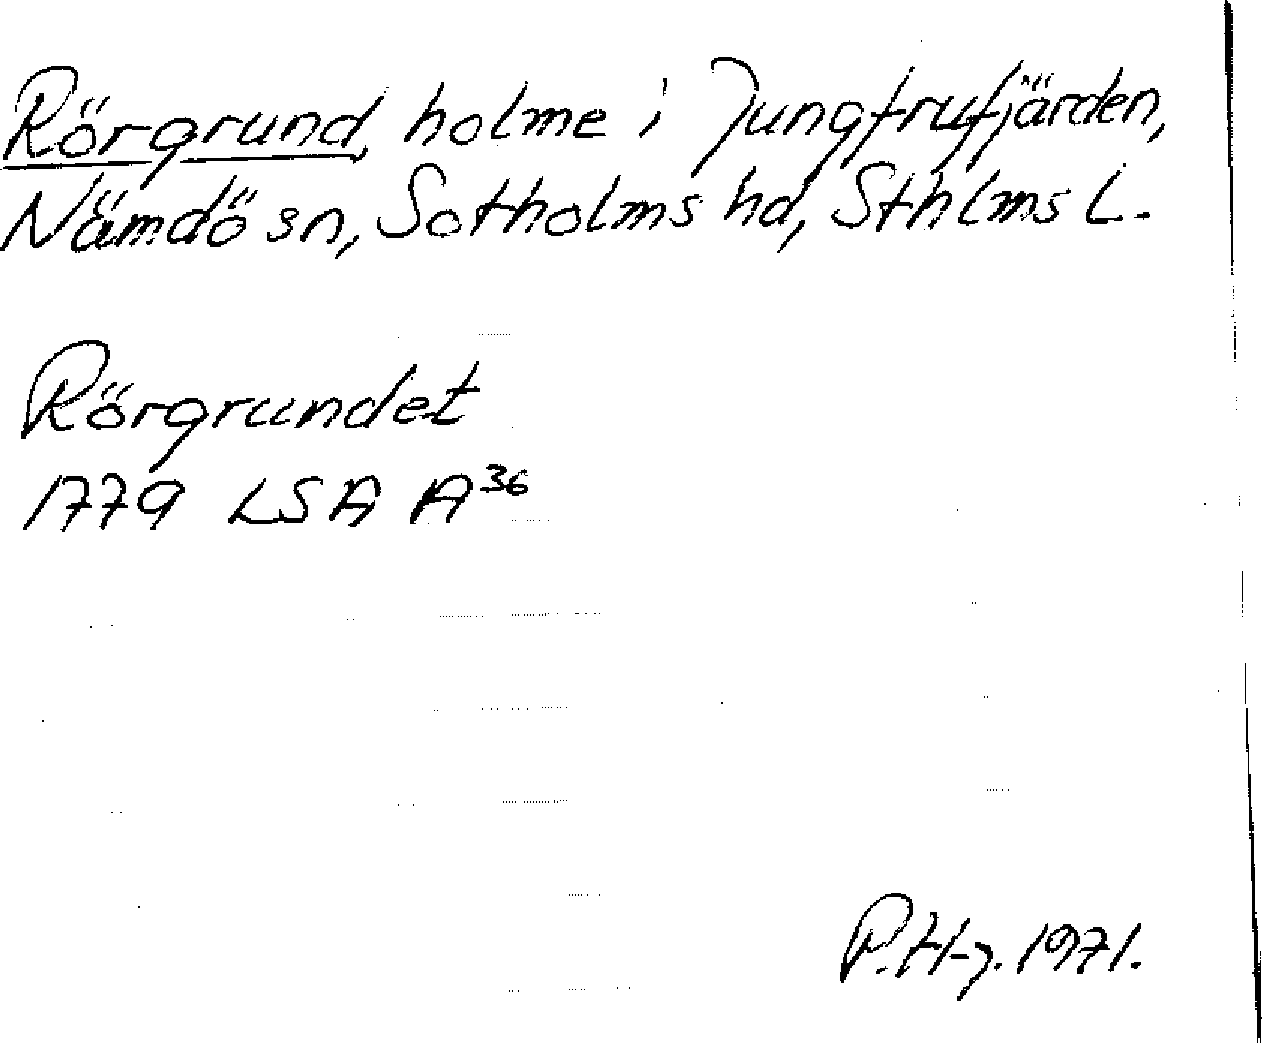 Rörgrund, holme i Jungfrufjärden,
Nämdö sn, Sotholms hd, Sthlms L.
Rörgrundet
1779 LSA A³⁶
P. H-g. 1971.